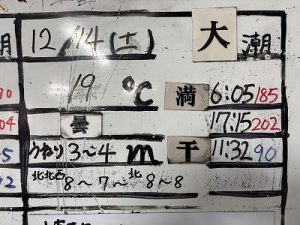 潮 12/14(土) 大 潮
19 ℃ 満 6:05 185
曇 17:15 202
うねり 3~4 m 干 11:32 90
北北西 8~7~北 8~8